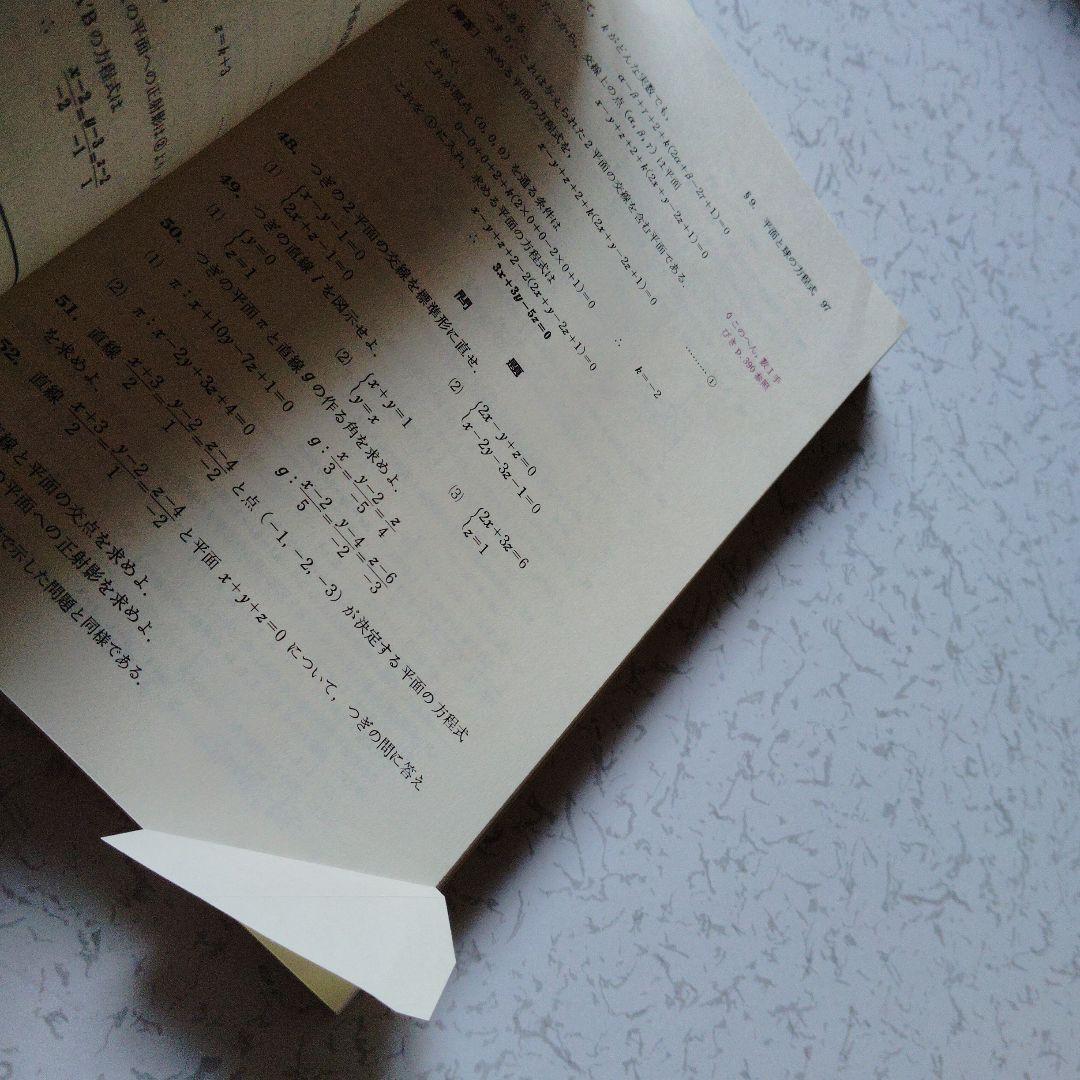 z=k+3
の平面への正射影は⑧より
'Bの方程式は
∴ (x-2)/-2=(y-3)/-1=(z-1)/1
§9. 平面と球の方程式 97
kがどんな実数でも,
α-β+γ+2+k(2α+β-2γ+1)=0
交線上の点 (α, β, γ) は平面
x-y+z+2+k(2x+y-2z+1)=0
つまり, これは与えられた2平面の交線を含む平面である.
〔解答〕 求める平面の方程式を,
x-y+z+2+k(2x+y-2z+1)=0 ………①
とおく.
これが原点 (0, 0, 0) を通る条件は
0-0+0+2+k(2×0+0-2×0+1)=0 ∴ k=-2
これを①に入れ, 求める平面の方程式は
x-y+z+2-2(2x+y-2z+1)=0
∴ 3x+3y-5z=0
◊このへん, 数Ⅰ手
びき p. 390 参照
問 題
48. つぎの2平面の交線を標準形に直せ.
(1) {x-y-1=0 2x+z-1=0 (2) {2x-y+z=0 x-2y-3z-1=0
49. つぎの直線 l を図示せよ.
(1) {y=0 z=1 (2) {x+y=1 y=x (3) {2x+3z=6 z=1
50. つぎの平面 π と直線 g の作る角を求めよ.
(1) π : x+10y-7z+1=0 g : x/3=(y-2)/-5=z/4
(2) π : x-2y+3z+4=0 g : (x-2)/5=(y-4)/-2=(z-6)/-3
51. 直線 (x+3)/2=(y-2)/1=(z-4)/-2 と点 (-1, -2, -3) が決定する平面の方程式
を求めよ.
52. 直線 (x+3)/2=(y-2)/1=(z-4)/-2 と平面 x+y+z=0 について, つぎの問に答え
線と平面の交点を求めよ.
の平面への正射影を求めよ.
で示した問題と同様である.